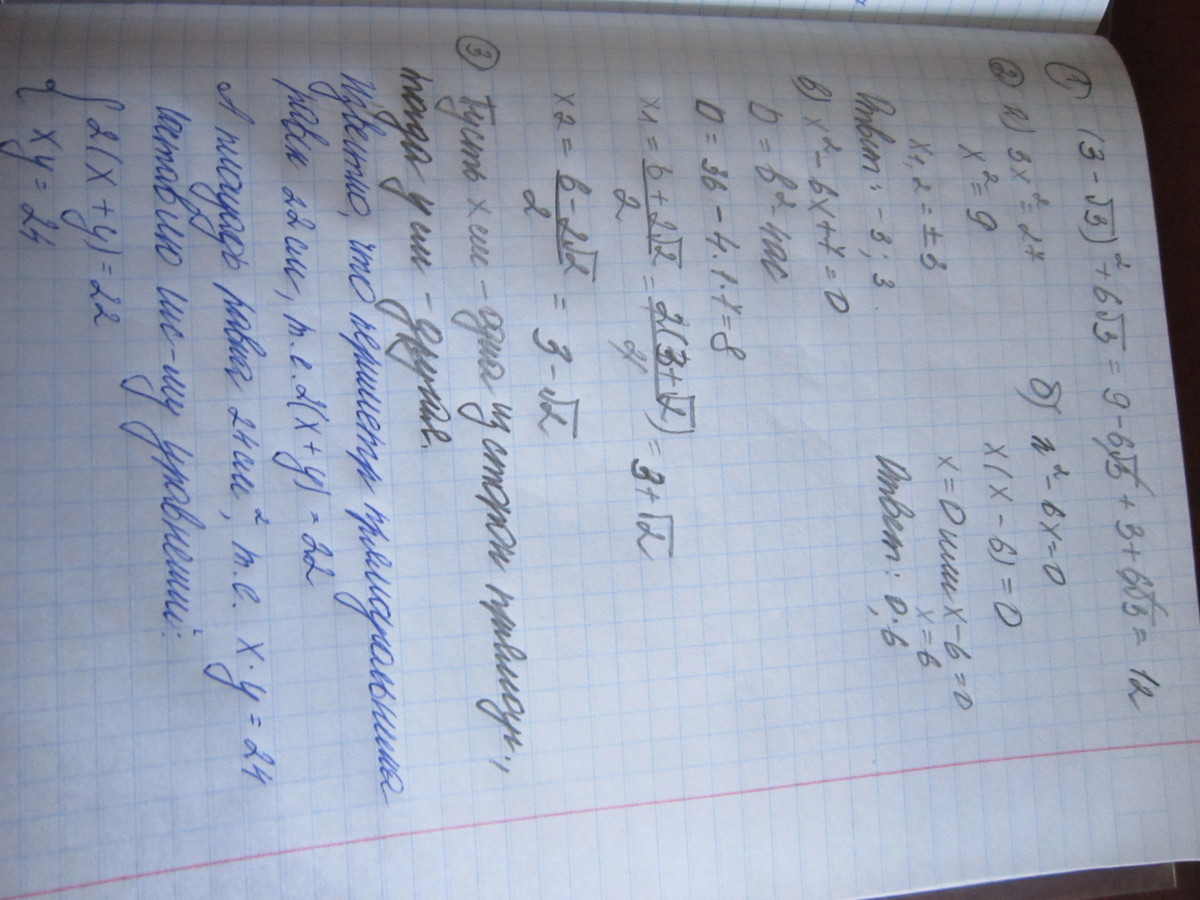 ① (3 - √3)² + 6√3 = 9 - 6√3 + 3 + 6√3 = 12
② а) 3x² = 27
x² = 9
x₁,₂ = ± 3
Ответ: -3; 3.
б) x² - 6x = 0
x(x - 6) = 0
x = 0 или x - 6 = 0
x = 6
Ответ: 0; 6
в) x² - 6x + 7 = 0
D = b² - 4ac
D = 36 - 4·1·7 = 8
x₁ = (6 + 2√2)/2 = 2(3 + √2)/2 = 3 + √2
x₂ = (6 - 2√2)/2 = 3 - √2
③ Пусть x см - одна из сторон прямоуг.,
тогда y см - другая.
Известно, что периметр прямоугольника
равен 22 см, т.е. 2(x + y) = 22
А площадь равна 24 см², т.е. x·y = 24
Составлю сис-му уравнений:
{ 2(x + y) = 22
xy = 24